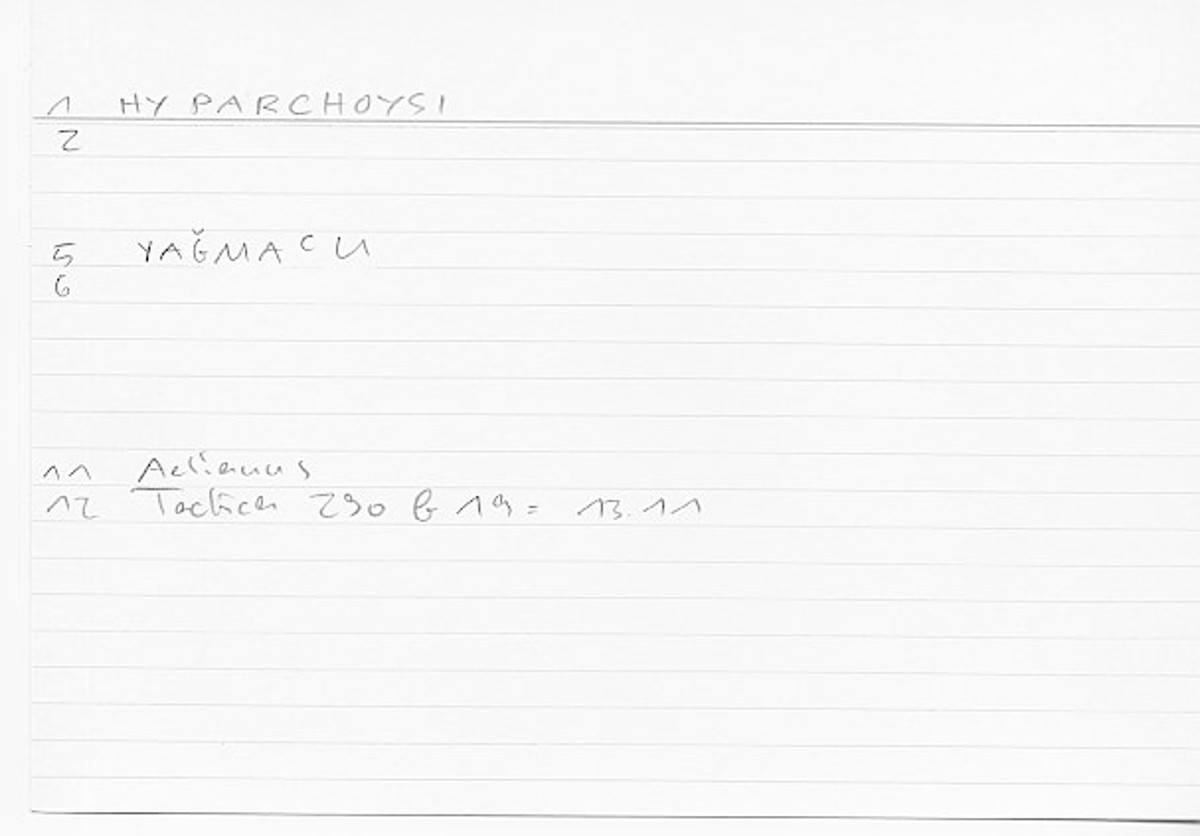 1 HYPARCHOYSI
2
5 YAĞMACU
6
11 Aelianus
12 Tactica 290 b 19 = 13.11